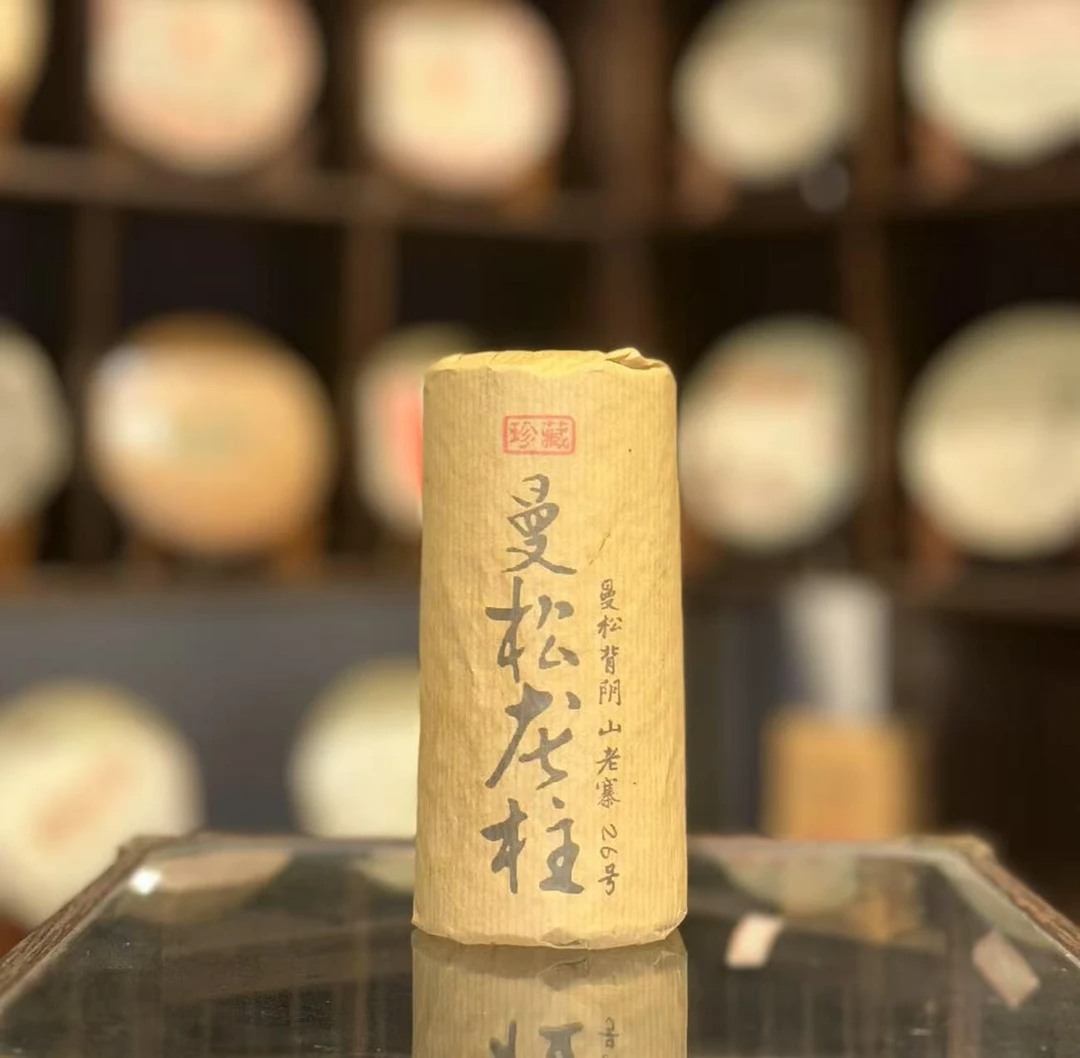 珍藏
曼松龙柱
曼松背阴山老寨26号